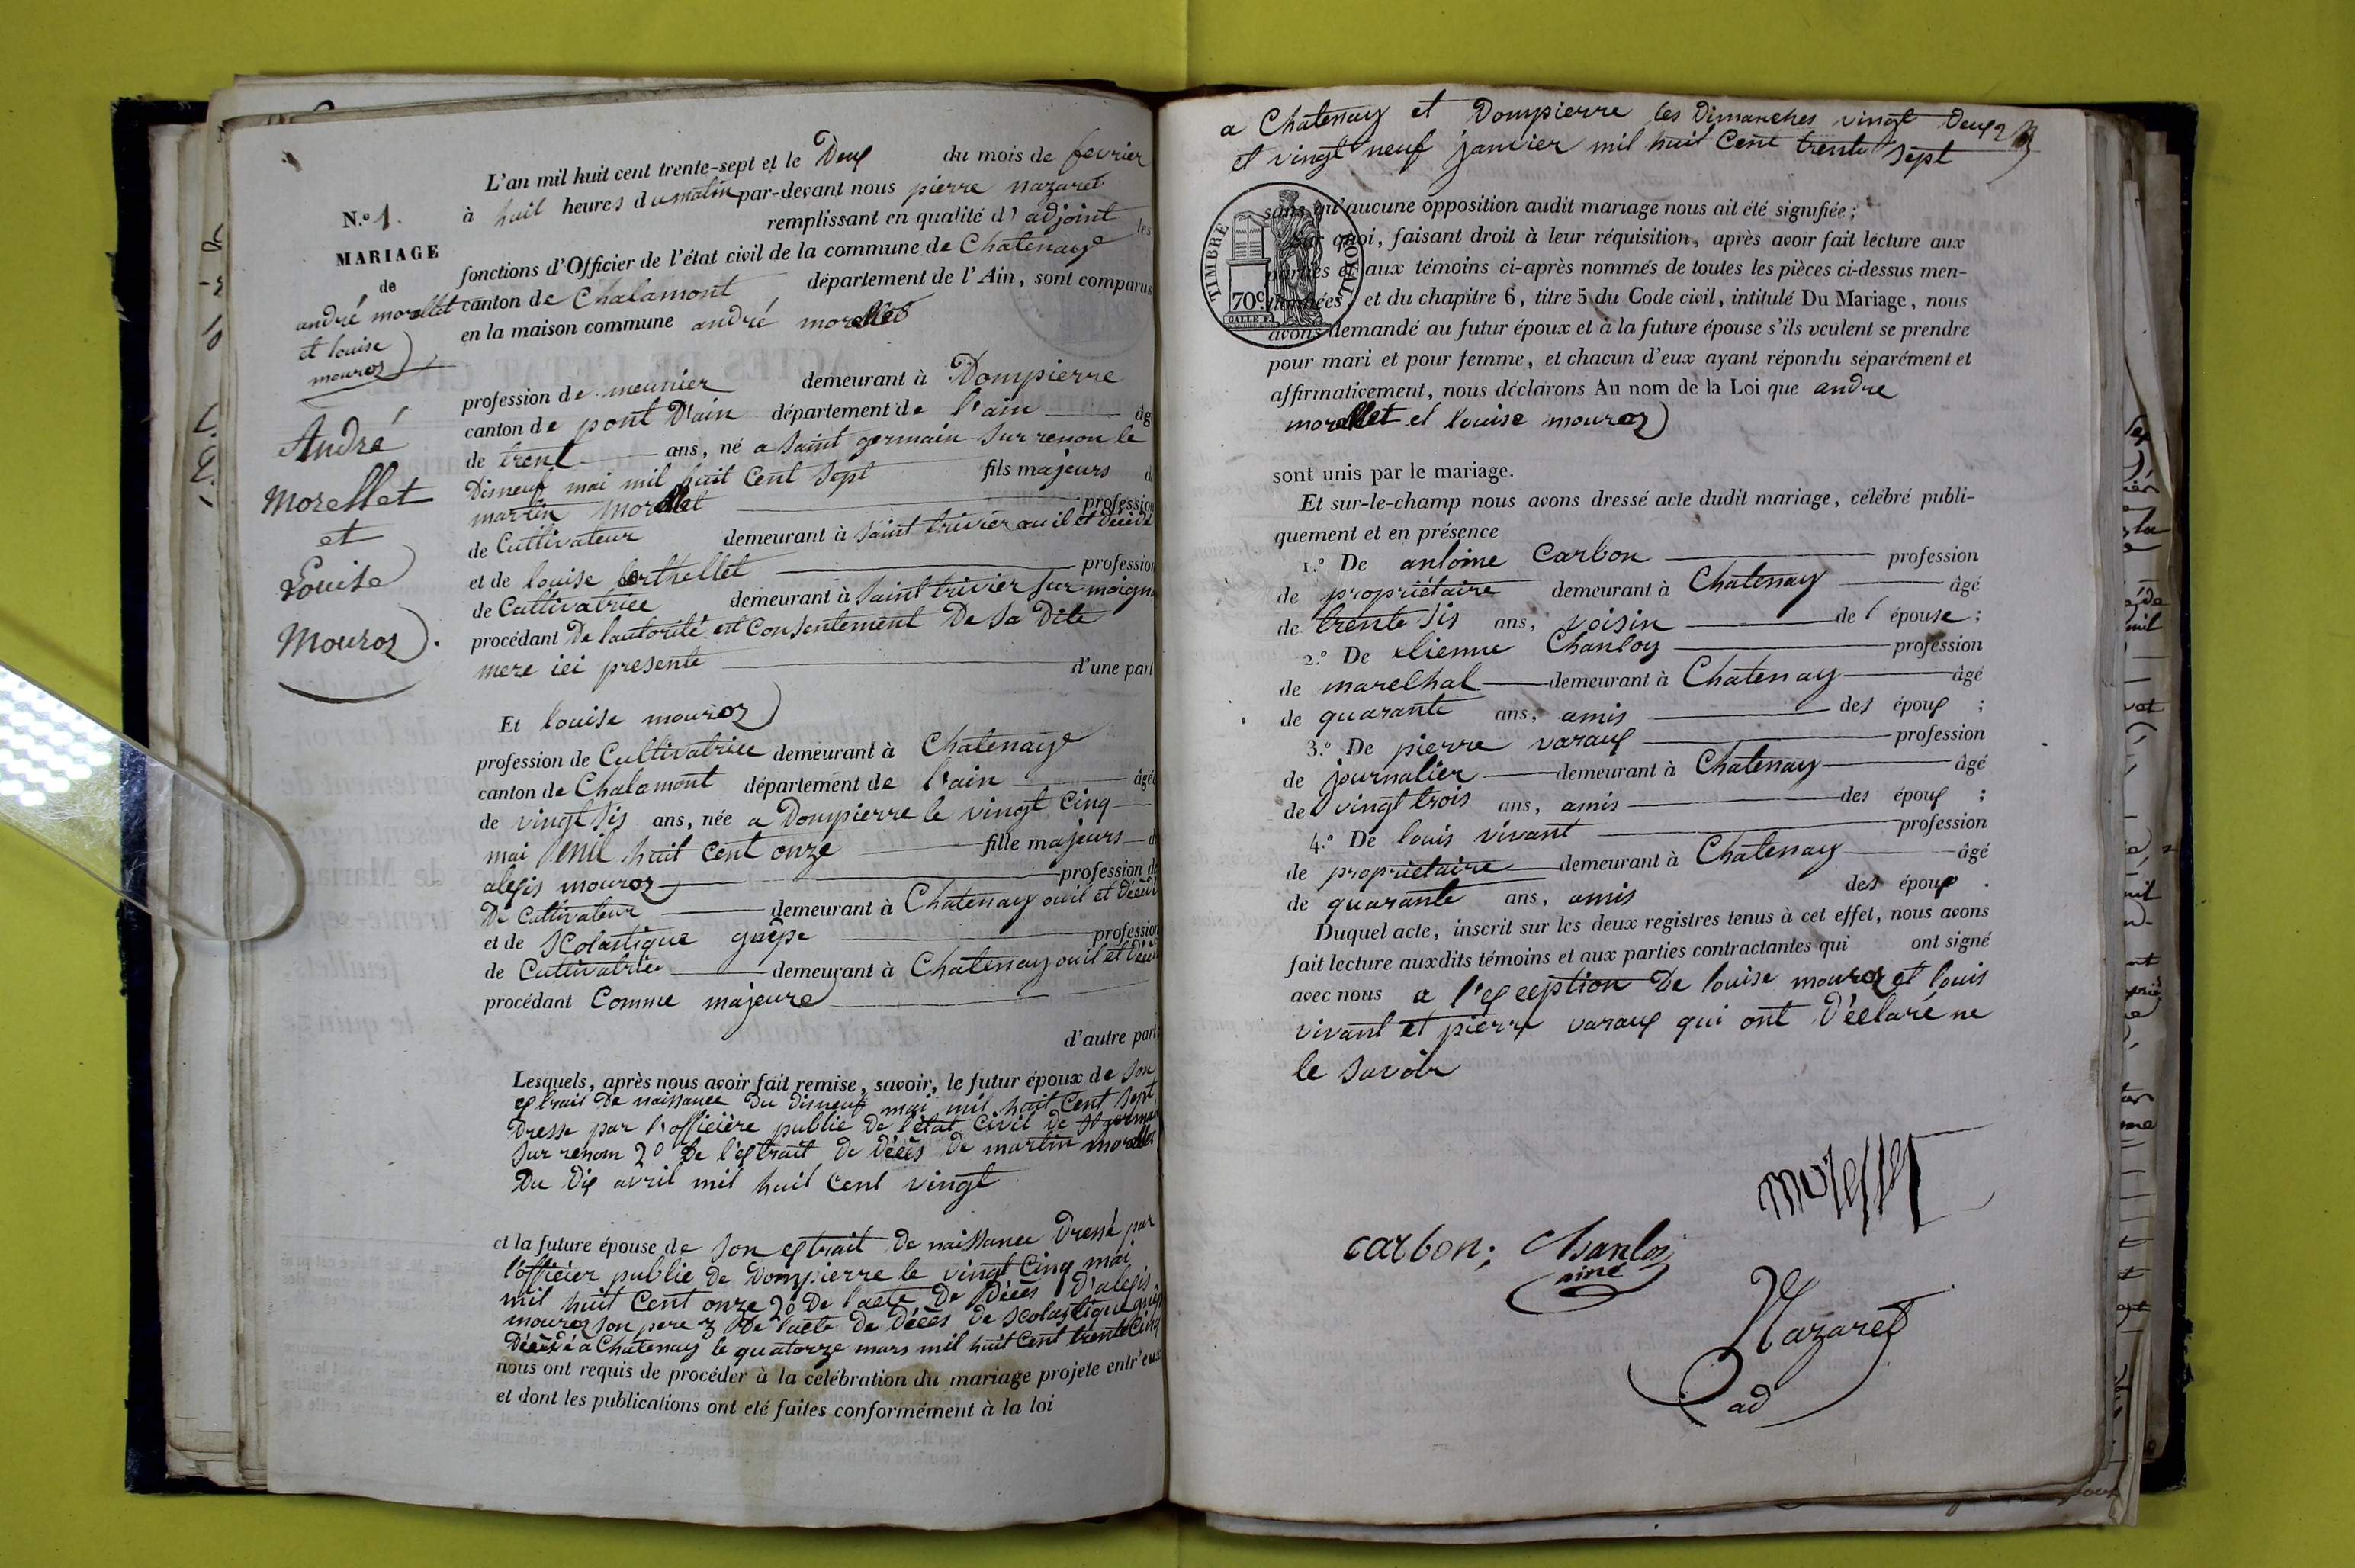 N.º 1.
MARIAGE
de
andré morellet
et louise
mouroz
André
Morellet
et
Louise
Mouroz.
L'an mil huit cent trente-sept et le Deux du mois de fevrier
à huit heures du matin par-devant nous pierre nazaret
remplissant en qualité d'adjoint les
fonctions d'Officier de l'état civil de la commune de Chatenaye
canton de Chalamont département de l'Ain, sont comparus
en la maison commune andré morellet
profession de meunier demeurant à Dompierre
canton de pont D'ain département de l'ain âg
de trent ans, né a saint germain sur renon le
Disneuf mai mil huit cent sept fils majeurs d
martin morellet profession
de Cultivateur demeurant à saint trivier ou il et décédé
et de louise berthellet profession
de Cultivatrice demeurant à saint trivier sur moigna
procédant De lautorité et consentement De sa Dite
mere ici presente d'une part
Et louise mouroz
profession de Cultivatrice demeurant à Chatenaye
canton de Chalamont département de l'ain âgé
de vingt sis ans, née a Dompierre le vingt cinq
mai mil huit cent onze fille majeurs d
alexis mouroz profession d
De Cultivateur demeurant à Chatenay ou il et décédé
et de scolastique guêpe profession
de Cultivatrice demeurant à Chatenay ou il et décéd
procédant Comme majeure
d'autre part
Lesquels, après nous avoir fait remise, savoir, le futur époux de son
extrait De naissance Du disneuf mai mil huit cent sept
Dresse par l'officière publie De l'état civil de St germain
sur renom 2º De l'extrait de Décès de martin morellet
Du Dix avril mil huit cent vingt
et la future épouse de son extrait de naissance Dressé par
l'officier publie De Dompierre le vingt cinq mai
mil huit cent onze 2º De l'acte De Décès D'alexis
mouroz son pere 3 De l'acte De Décès de scolastique guêp
Décédé a Chatenay le quatorze mars mil huit cent trente cinq
nous ont requis de procéder à la célébration du mariage projeté entr'eux
et dont les publications ont été faites conformément à la loi
a Chatenay et Dompierre les Dimanches vingt Deux
et vingt neuf janvier mil huit cent trente sept
TIMBRE ROYAL
70c
GALLE F.
sans qu'aucune opposition audit mariage nous ait été signifiée;
Sur quoi, faisant droit à leur réquisition, après avoir fait lecture aux
parties et aux témoins ci-après nommés de toutes les pièces ci-dessus men-
tionnées, et du chapitre 6, titre 5 du Code civil, intitulé Du Mariage, nous
avons demandé au futur époux et à la future épouse s'ils veulent se prendre
pour mari et pour femme, et chacun d'eux ayant répondu séparément et
affirmativement, nous déclarons Au nom de la Loi que andre
morellet et louise mouroz
sont unis par le mariage.
Et sur-le-champ nous avons dressé acte dudit mariage, célébré publi-
quement et en présence
1.º De antoine Carbon profession
de propriétaire demeurant à Chatenay âgé
de trente sis ans, voisin de l'épouse;
2.º De etienne Chanloy profession
de marechal demeurant à Chatenay âgé
de quarante ans, amis des époux;
3.º De pierre varaux profession
de journalier demeurant à Chatenay âgé
de vingt trois ans, amis des époux;
4.º De louis vivant profession
de propriétaire demeurant à Chatenay âgé
de quarante ans, amis des époux.
Duquel acte, inscrit sur les deux registres tenus à cet effet, nous avons
fait lecture auxdits témoins et aux parties contractantes qui ont signé
avec nous a l'exception De louise mouroz et louis
vivant et pierre varaux qui ont Déclaré ne
le savoir
morellet
carbon; Chanloy
ainé
Nazaret
ad